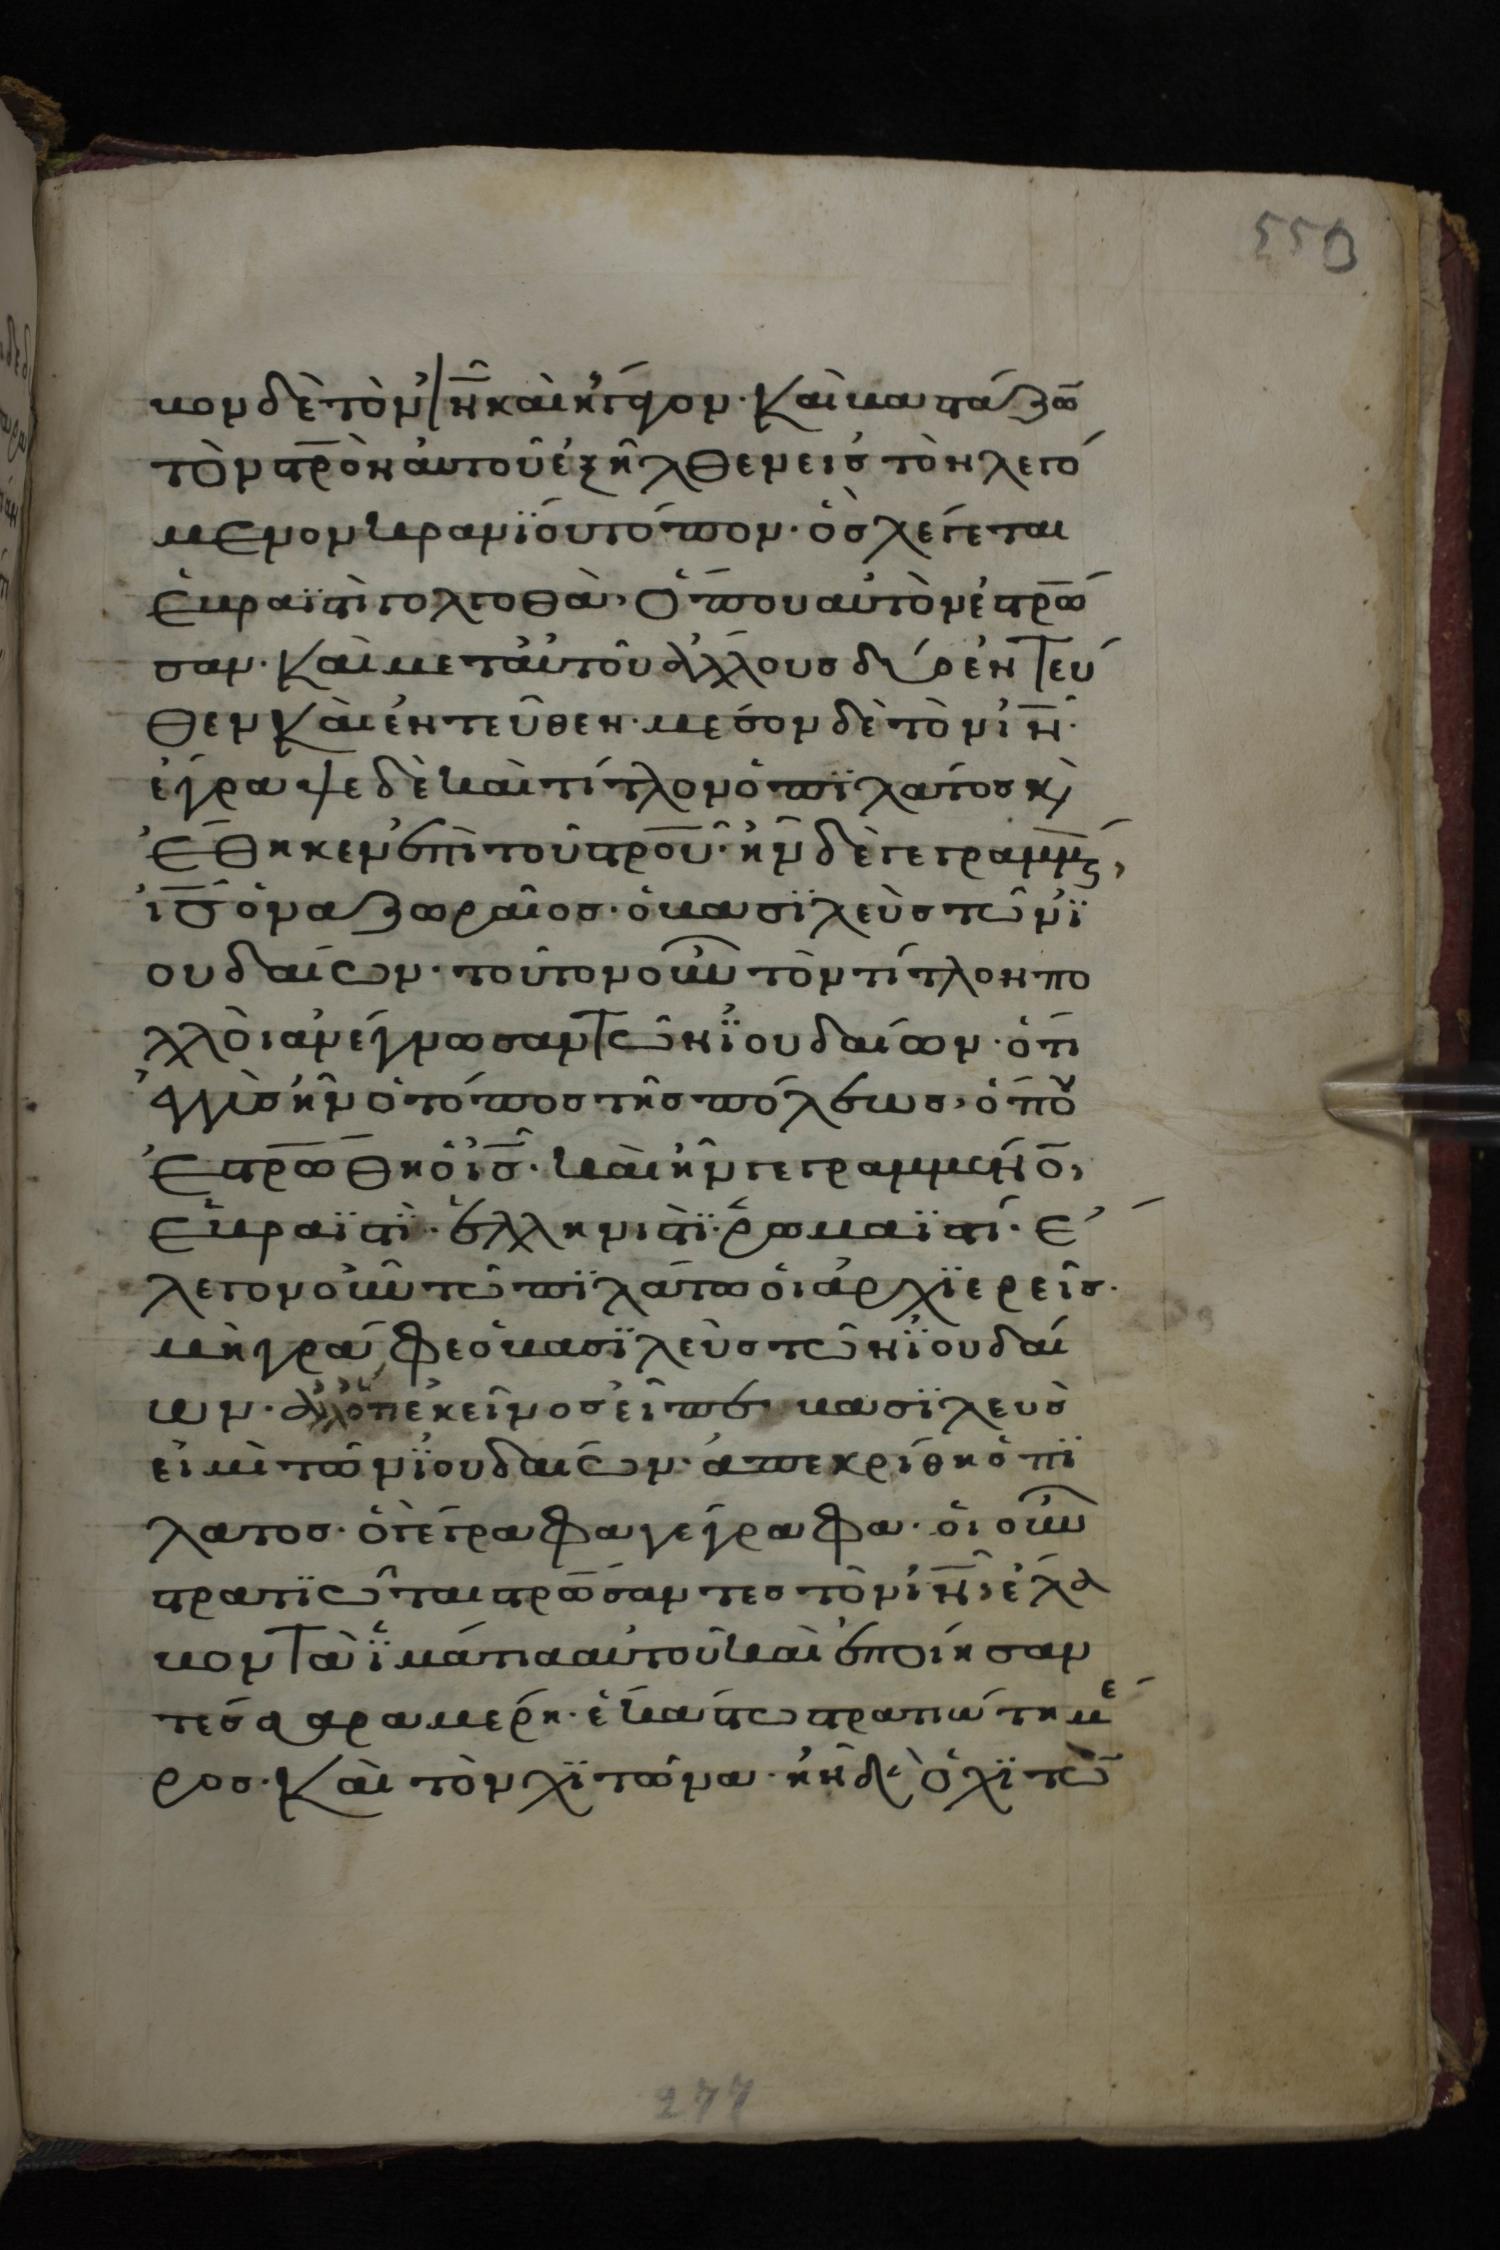 550
βον δὲ τὸν ιν̅ καὶ ἤγαγον· καὶ βαστάζω̅
τὸν στρ̅ὸν αὐτοῦ ἐξῆλθεν εἰς τὸν λεγό
μενον κρανΐου τόπον· ὃς λέγεται
ἑβραϊστὶ γολγοθὰ, ὅπου αὐτὸν ἐστρ̅ω
σαν· καὶ μετ αὐτοῦ ἄλλους δύο ἐντεύ
θεν καὶ ἐντεῦθεν· μέσον δὲ τὸν ιν̅·
ἔγραψε δὲ καὶ τίτλον ὁ πϊλάτος κ̀
ἔθηκεν ἐπὶ τοῦ στρ̅οῦ· ἦν δὲ γεγραμμέ̅,
ι̅ς ὁ ναζωραῖος· ὁ βασϊλεὺς τῶν ϊ
ουδαίων· τοῦτον οὖν τὸν τίτλον πο
λλοὶ ἀνέγνωσαν τῶν ἰουδαίων· ὅτι
ἐγγὺς ἦν ὁ τόπος τῆς πόλεως, ὅπου
ἐστρ̅ώθη ὁ ι̅ς· καὶ ἦν γεγραμμένο̅,
ἑβραϊστὶ· ἑλληνιστὶ· ῥωμαϊστί· ἔ
λεγον οὖν τῶ πϊλάτω οἱ ἀρχϊερεῖς·
μὴ γράφε ὁ βασϊλεὺς τῶν ἰουδαί
ων· ἀλλ' ὅτι ἐκεῖνος εἶπε· βασϊλεὺς
εἰμὶ τῶν ἰουδαίων· ἀπεκρίθη ὁ πϊ
λατος· ὃ γέγραφα γέγραφα· οἱ οὖν
στρατϊῶται στρ̅ώσαντες τὸν ιν̅, ἔλα
βον τὰ ἱμάτια αὐτοῦ καὶ ἐποίησαν
τέσσαρα μέρη· ἑκάστω στρατιώτη μέ
ρος· καὶ τὸν χϊτῶνα· ἦν δὲ ὁ χϊτὼ̅
277